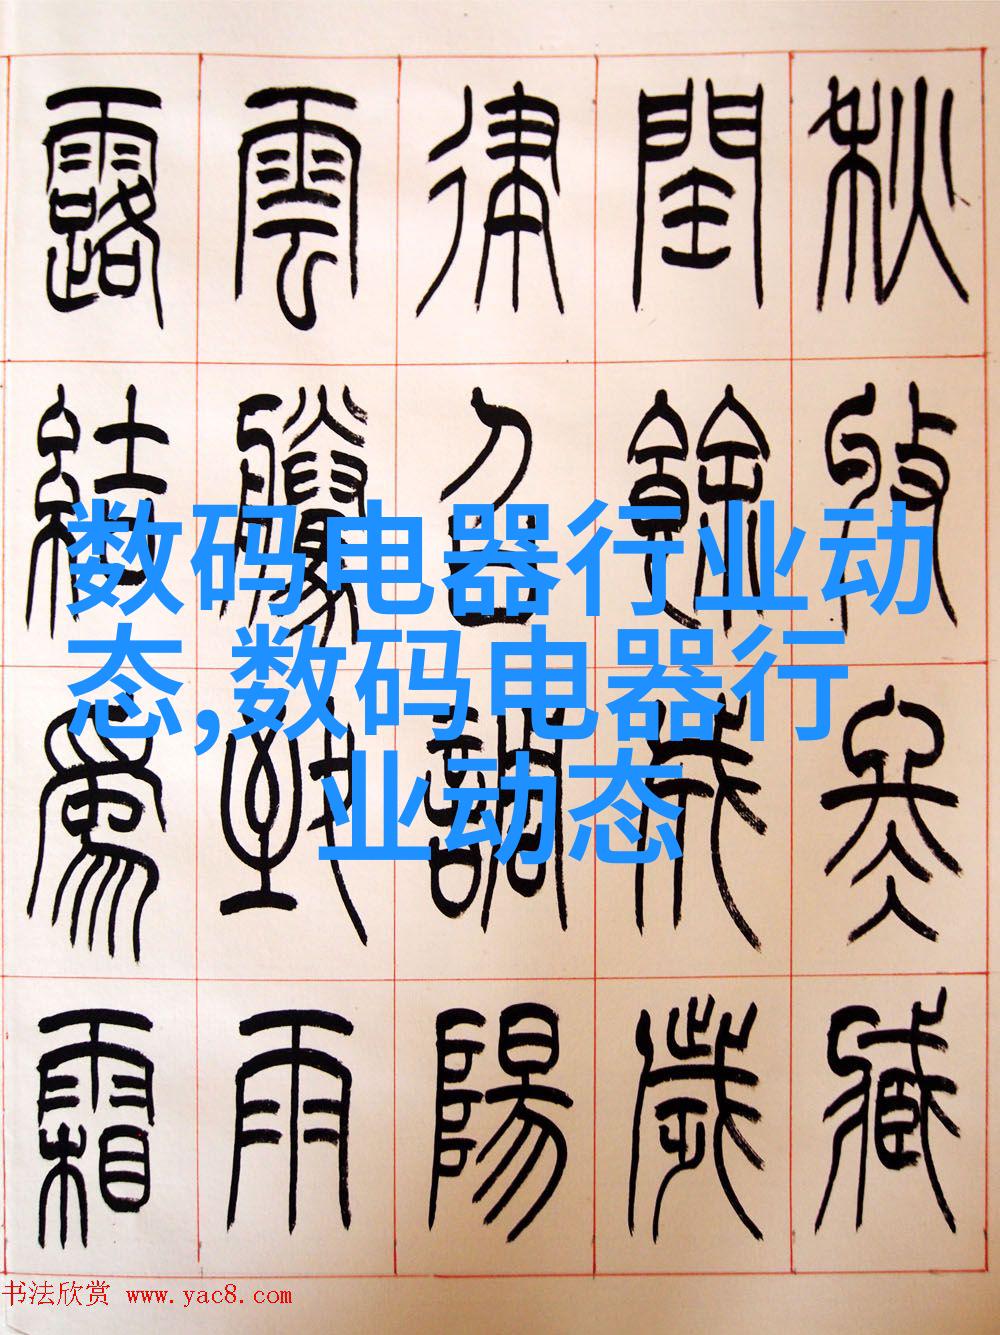 秋收冬臧
閏餘成歲
律召調陽
雲騰致雨
露結爲霜
数码电器行业动
态,数码电器行
业动态
书法欣赏 www.yac8.com